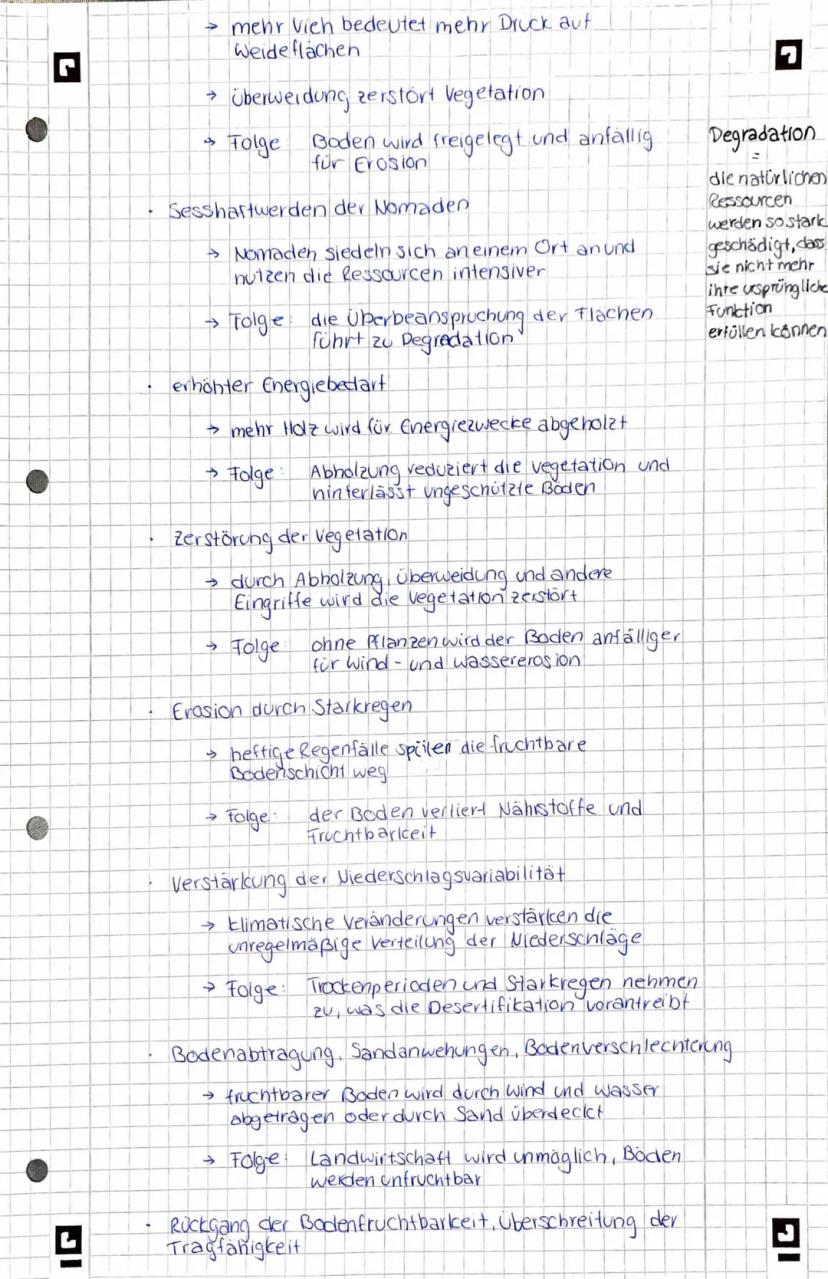 → mehr Vieh bedeutet mehr Druck auf
Weideflächen
→ Überweidung zerstört Vegetation
→ Folge Boden wird freigelegt und anfällig
für Erosion
Degradation
=
die natürlichen
Ressourcen
werden so stark
geschädigt, dass
sie nicht mehr
ihre ursprüngliche
Funktion
erfüllen können
· Sesshaftwerden der Nomaden
→ Nomaden siedeln sich an einem Ort an und
nutzen die Ressourcen intensiver
→ Folge: die Überbeanspruchung der Flächen
führt zu Degradation
· erhöhter Energiebedarf
→ mehr Holz wird für Energiezwecke abgeholzt
→ Folge: Abholzung reduziert die Vegetation und
hinterlässt ungeschützte Böden
· Zerstörung der Vegetation
→ durch Abholzung, Überweidung und andere
Eingriffe wird die Vegetation zerstört
→ Folge: ohne Pflanzen wird der Boden anfälliger
für Wind- und Wassererosion
· Erosion durch Starkregen
→ heftige Regenfälle spülen die fruchtbare
Bodenschicht weg
→ Folge: der Boden verliert Nährstoffe und
Fruchtbarkeit
· Verstärkung der Niederschlagsvariabilität
→ klimatische Veränderungen verstärken die
unregelmäßige Verteilung der Niederschläge
→ Folge: Trockenperioden und Starkregen nehmen
zu, was die Desertifikation vorantreibt
· Bodenabtragung, Sandanwehungen, Bodenverschlechterung
→ fruchtbarer Boden wird durch Wind und Wasser
abgetragen oder durch Sand überdeckt
→ Folge: Landwirtschaft wird unmöglich, Böden
werden unfruchtbar
· Rückgang der Bodenfruchtbarkeit, Überschreitung der
Tragfähigkeit